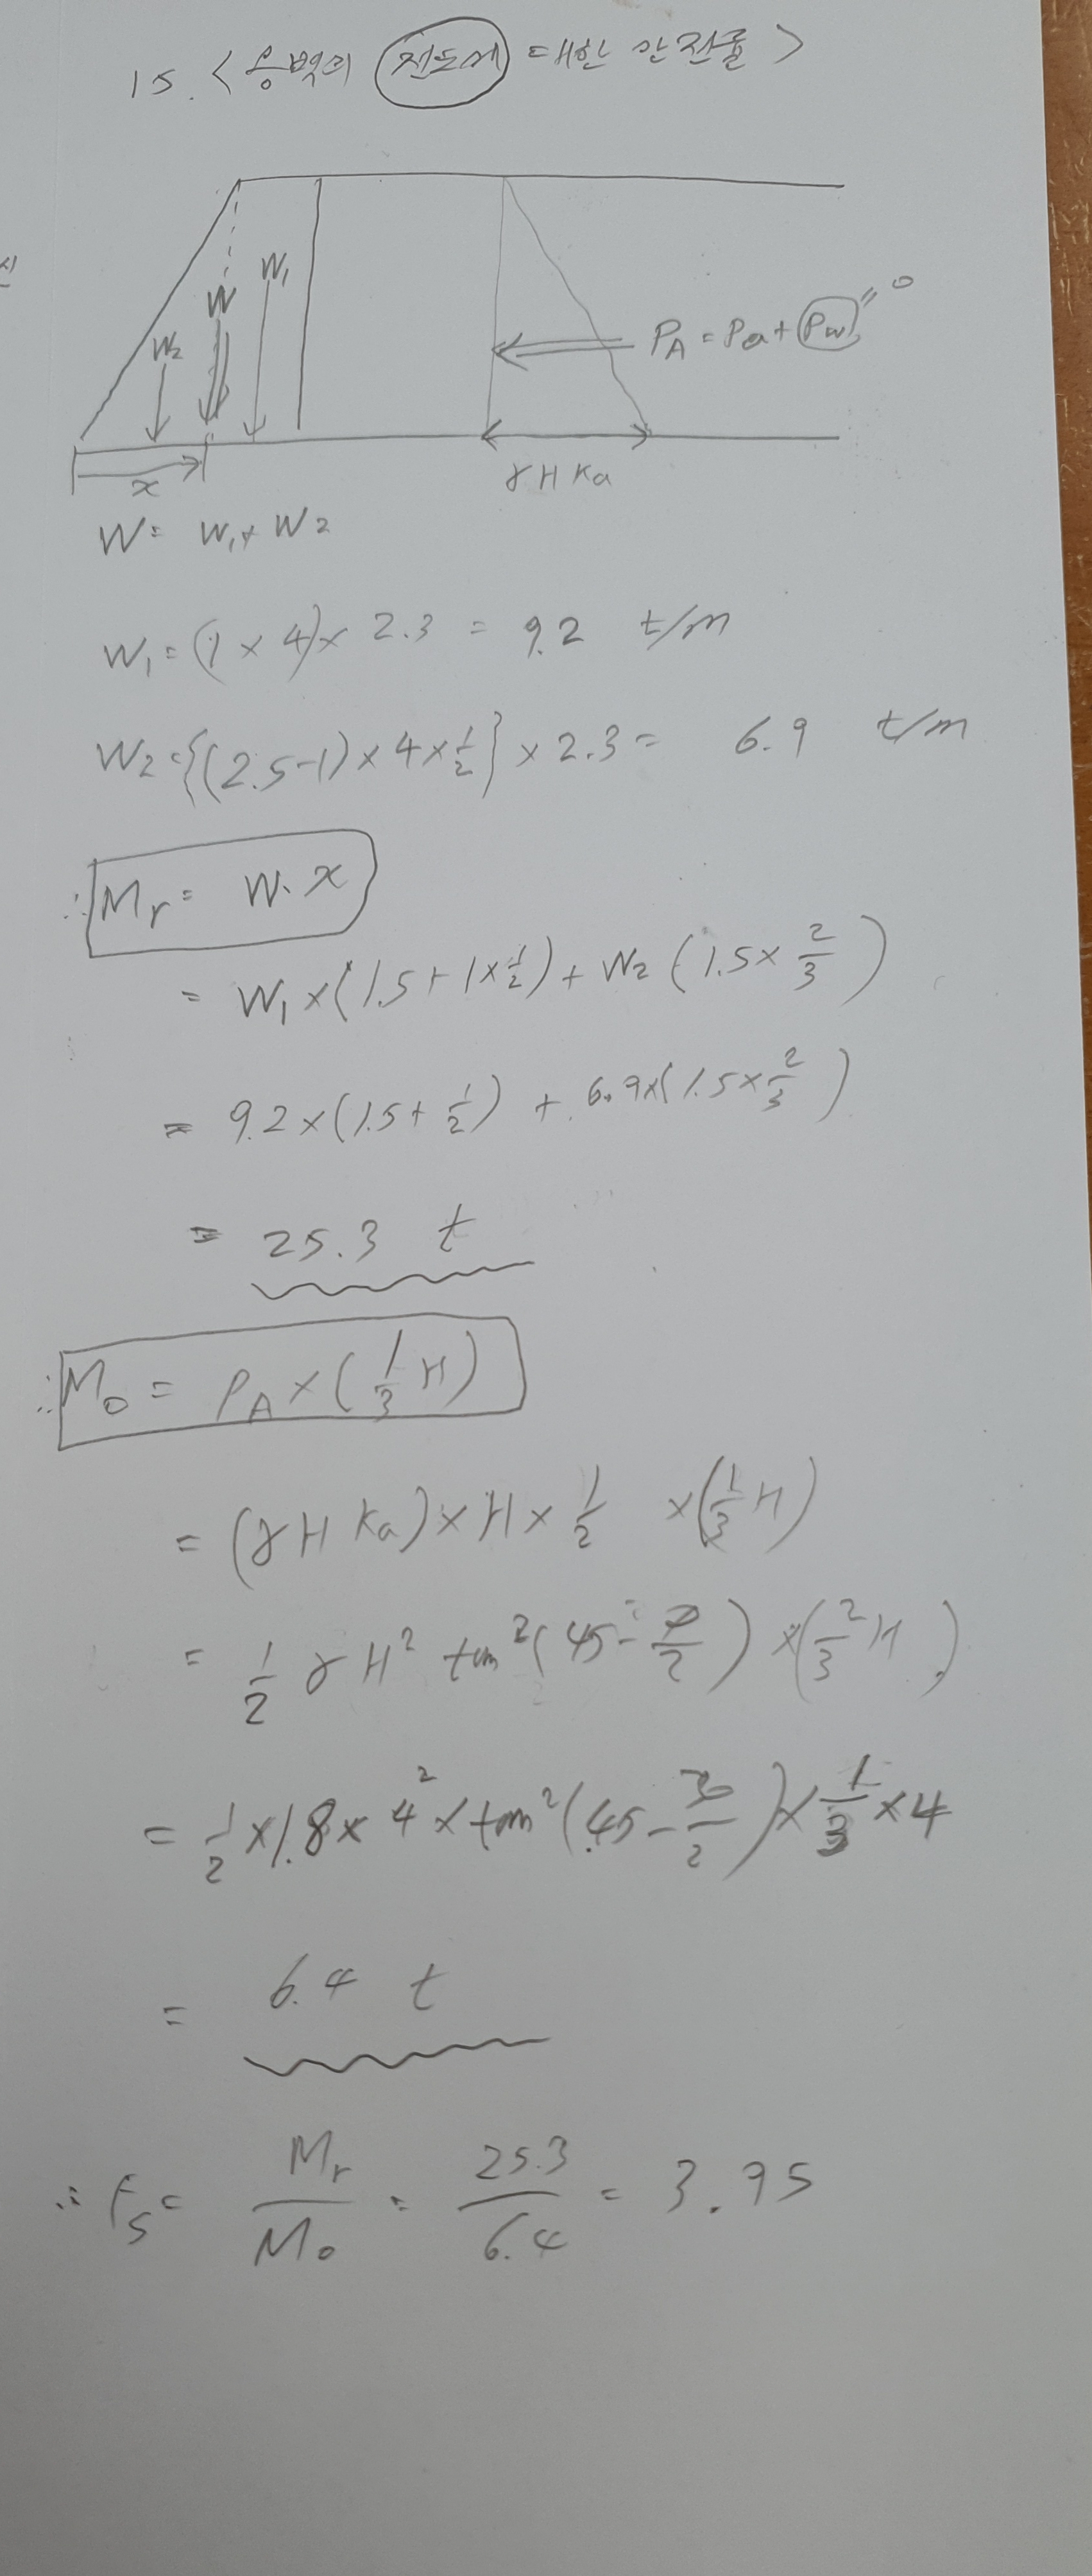 15. <옹벽의 전도에 대한 안전률>
W₁
W
W₂
P_A = Pa + Pw = 0
x
γHKa
W = W₁ + W₂
W₁ = (1 × 4) × 2.3 = 9.2 t/m
W₂ = {(2.5-1) × 4 × 1/2} × 2.3 = 6.9 t/m
∴ Mr = W. x
= W₁ × (1.5 + 1 × 1/2) + W₂ (1.5 × 2/3)
= 9.2 × (1.5 + 1/2) + 6.9 × (1.5 × 2/3)
= 25.3 t
∴ Mo = P_A × (1/3 H)
= (γH Ka) × H × 1/2 × (1/3 H)
= 1/2 γ H² tan² (45° - ø/2) × (2/3 H)
= 1/2 × 1.8 × 4² × tan² (45 - 30/2) × 1/3 × 4
= 6.4 t
∴ Fs = Mr/Mo = 25.3/6.4 = 3.95